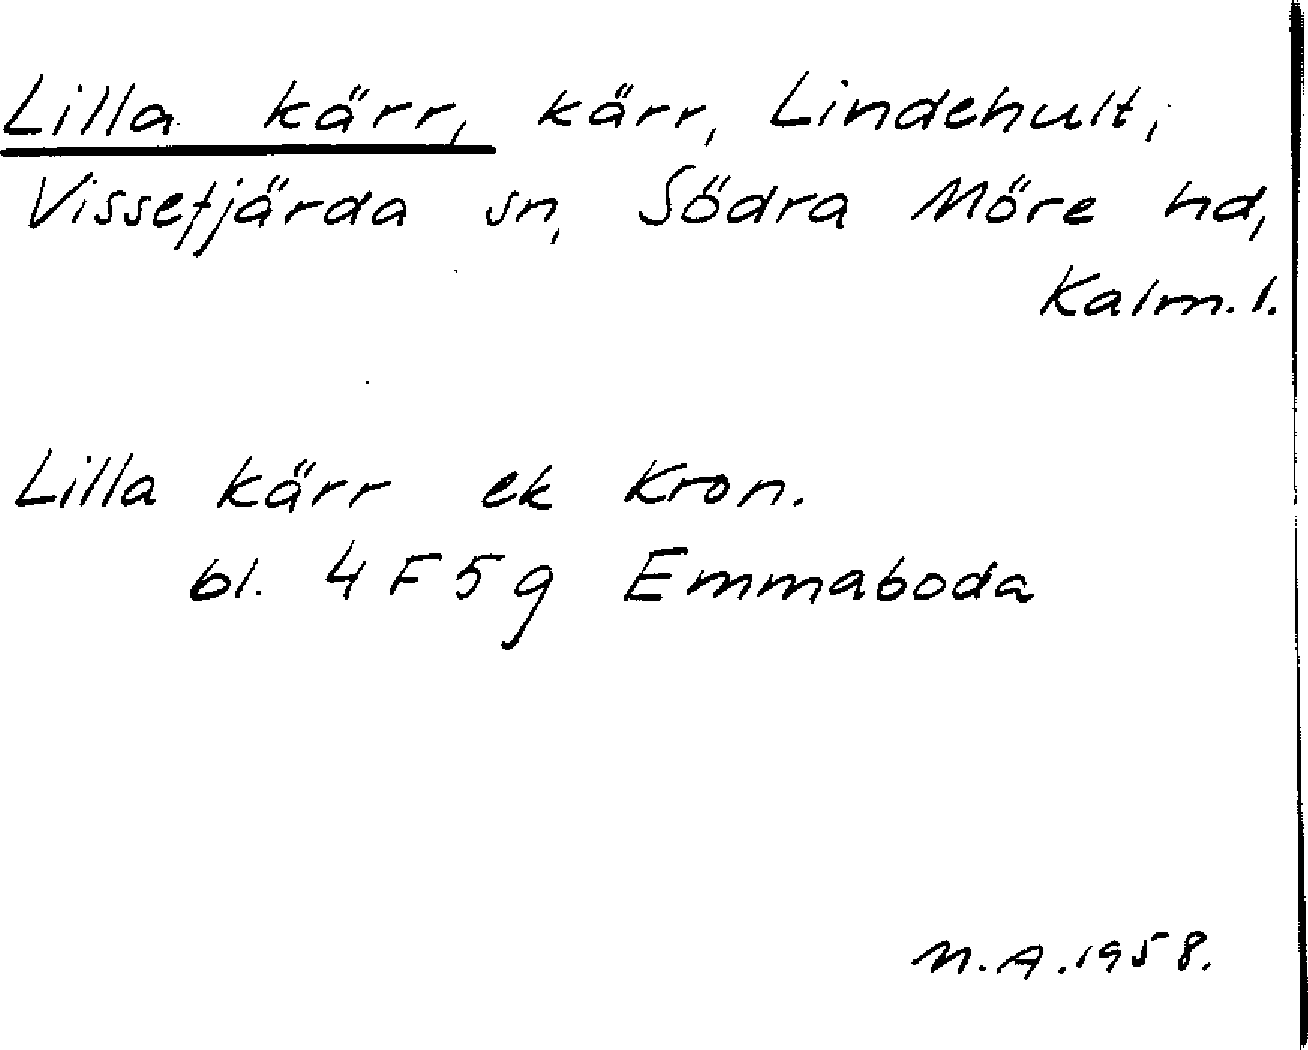 Lilla kärr, kärr, Lindehult,
Vissefjärda sn, Södra Möre hd,
Kalm. l.
Lilla kärr ek Kron.
bl. 4 F 5 g Emmaboda
M.A. 1958.